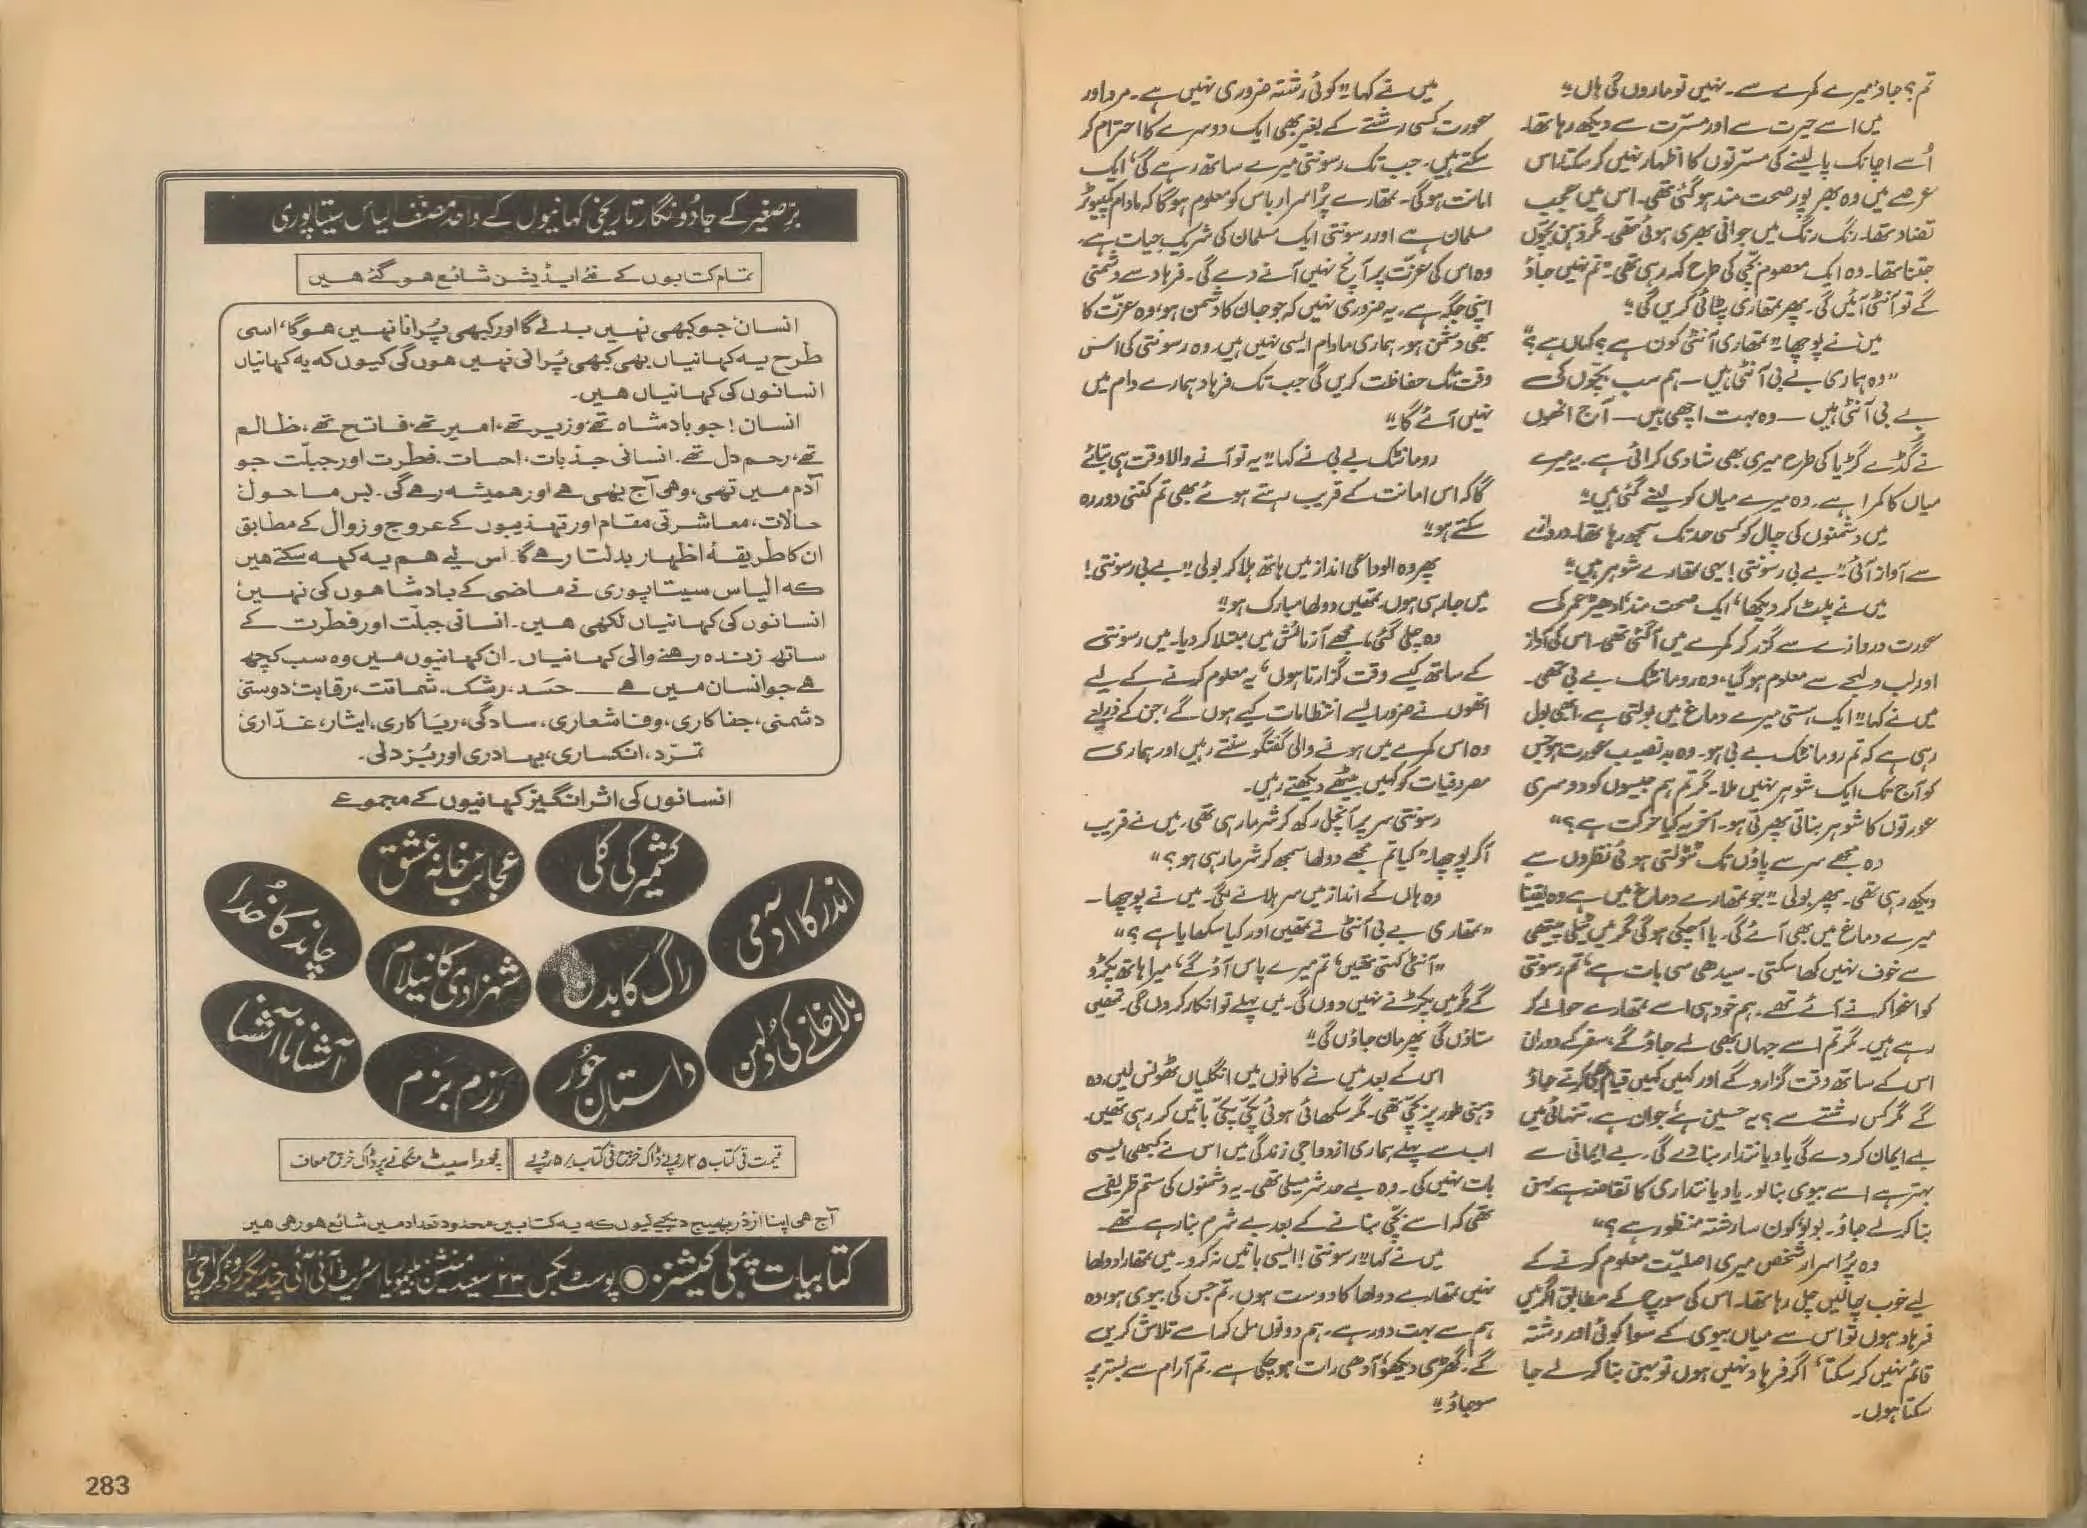 تم؟ جاؤ میرے کمرے سے۔ نہیں تو ماروں گی ہاں"
میں اسے حیرت سے اور مسرّت سے دیکھ رہا تھا۔
اُسے اچانک پا لینے کی مسرّتوں کا اظہار نہیں کر سکتا۔ اس
عرصے میں وہ بھرپور صحت مند ہو گئی تھی۔ اس میں عجیب
تضاد تھا۔ رنگ رنگ میں جوانی بھری ہوئی تھی۔ مگر ذہن بچّوں
جتنا تھا۔ وہ ایک معصوم بچّی کی طرح کہہ رہی تھی۔ "تم نہیں جاؤ
گے تو آنٹی آئیں گی۔ پھر تمھاری پٹائی کریں گی"
میں نے پوچھا "تمھاری آنٹی کون ہے؟ کہاں ہے؟"
"وہ ہماری بے بی آنٹی ہیں — ہم سب بچّوں کی
بے بی آنٹی ہیں — وہ بہت اچھی ہیں — آج انھوں
نے گڈے گڑیا کی طرح میری بھی شادی کرائی ہے۔ یہ میرے
میاں کا کمرا ہے۔ وہ میرے میاں کو لینے گئی ہیں"
میں دشمنوں کی چال کو کسی حد تک سمجھ رہا تھا۔ دروازے
سے آواز آئی "بے بی رسونتی! یہی تمھارے شوہر ہیں"
میں نے پلٹ کر دیکھا، ایک صحت مند، ادھیڑ عمر کی
عورت دروازے سے گزر کر کمرے میں آگئی تھی۔ اس کی آواز
اور لب و لہجے سے معلوم ہو گیا، وہ رومانٹک بے بی تھی۔
میں نے کہا "ایک ہستی میرے دماغ میں بولتی ہے، ابھی بول
رہی ہے کہ تم رومانٹک بے بی ہو۔ وہ بدنصیب عورت ہو جس
کو آج تک ایک شوہر نہیں ملا۔ مگر تم ہم جیسوں کو دوسری
عورتوں کا شوہر بناتی پھرتی ہو۔ آخر یہ کیا حرکت ہے؟"
وہ مجھے سر سے پاؤں تک ٹٹولتی ہوئی نظروں سے
دیکھ رہی تھی۔ پھر بولی "جو تمھارے دماغ میں ہے وہ یقیناً
میرے دماغ میں بھی آئے گی۔ یا آچکی ہوگی مگر میں ٹیلی پیتھی
سے خوف نہیں کھا سکتی۔ سیدھی سی بات ہے، تم رسونتی
کو اغوا کرنے آئے تھے۔ ہم خود ہی اسے تمھارے حوالے کر
رہے ہیں۔ مگر تم اسے جہاں بھی لے جاؤ گے، سفر کے دوران
اس کے ساتھ وقت گزارو گے اور کہیں کہیں قیام بھی کرتے جاؤ
گے مگر کس رشتے سے؟ یہ حسین ہے، جوان ہے۔ تنہائی میں
بے ایمان کر دے گی یا دیانتدار بنا دے گی۔ بے ایمانی سے
بہتر ہے اسے بیوی بنا لو۔ یا دیانتداری کا تقاضہ ہے بہن
بنا کر لے جاؤ۔ بولو کون سا رشتہ منظور ہے؟"
وہ پُراسرار شخص میری اصلیّت معلوم کرنے کے
لیے خوب چالیں چل رہا تھا۔ اس کی سوچ کے مطابق اگر میں
فرہاد ہوں تو اس سے میاں بیوی کے سوا کوئی اور رشتہ
قائم نہیں کر سکتا، اگر فرہاد نہیں ہوں تو بہن بنا کر لے جا
سکتا ہوں۔
میں نے کہا "کوئی رشتہ ضروری نہیں ہے۔ مرد اور
عورت کسی رشتے کے بغیر بھی ایک دوسرے کا احترام کر
سکتے ہیں۔ جب تک رسونتی میرے ساتھ رہے گی، ایک
امانت ہوگی۔ تمھارے پُراسرار باس کو معلوم ہوگا کہ مادام کمپیوٹر
مسلمان ہے اور رسونتی ایک مسلمان کی شریکِ حیات ہے۔
وہ اس کی عزّت پر آنچ نہیں آنے دے گی۔ فرہاد سے دشمنی
اپنی جگہ ہے۔ یہ ضروری نہیں کہ جو جان کا دشمن ہو، وہ عزّت کا
بھی دشمن ہو۔ ہماری مادام ایسی نہیں ہیں۔ وہ رسونتی کی اس
وقت تک حفاظت کریں گی جب تک فرہاد ہمارے دام میں
نہیں آئے گا"
رومانٹک بے بی نے کہا "یہ تو آنے والا وقت ہی بتائے
گا کہ اس امانت کے قریب رہتے ہوئے بھی تم کتنی دور رہ
سکتے ہو"
پھر وہ الوداعی انداز میں ہاتھ ہلا کر بولی "بے بی رسونتی!
میں جا رہی ہوں۔ تمھیں دولھا مبارک ہو"
وہ چلی گئی، مجھے آزمائش میں مبتلا کر دیا۔ میں رسونتی
کے ساتھ کیسے وقت گزارتا ہوں، یہ معلوم کرنے کے لیے
انھوں نے ضرور ایسے انتظامات کیے ہوں گے، جن کے ذریعے
وہ اس کمرے میں ہونے والی گفتگو سنتے رہیں اور ہماری
مصروفیات کو کہیں بیٹھے دیکھتے رہیں۔
رسونتی سر پر آنچل رکھ کر شرما رہی تھی۔ میں نے قریب
آکر پوچھا "کیا تم مجھے دولھا سمجھ کر شرما رہی ہو؟"
وہ ہاں کے انداز میں سر ہلانے لگی۔ میں نے پوچھا۔
"تمھاری بے بی آنٹی نے تمھیں اور کیا سکھایا ہے؟"
"آنٹی کہتی تھیں، تم میرے پاس آؤ گے، میرا ہاتھ پکڑو
گے مگر میں پکڑنے نہیں دوں گی۔ میں پہلے تو انکار کردوں گی۔ تمھیں
ستاؤں گی پھر مان جاؤں گی"
اس کے بعد میں نے کانوں میں انگلیاں ٹھونس لیں، وہ
ذہنی طور پر بچّی تھی۔ مگر سکھائی ہوئی پکّی پکّی باتیں کر رہی تھیں۔
اب سے پہلے ہماری ازدواجی زندگی میں اس نے کبھی ایسی
بات نہیں کی۔ وہ بے حد شرمیلی تھی۔ یہ دشمنوں کی ستم ظریفی
تھی کہ اسے بچّی بنانے کے بعد بے شرم بنا رہے تھے۔
میں نے کہا "رسونتی! ایسی باتیں نہ کرو۔ میں تمھارا دولھا
نہیں تمھارے دولھا کا دوست ہوں۔ تم جس کی بیوی ہو، وہ
ہم سے بہت دور ہے۔ ہم دونوں مل کر اسے تلاش کریں
گے۔ گھڑی دیکھو، آدھی رات ہو چکی ہے۔ تم آرام سے بستر پر
سو جاؤ"
برِّصغیر کے جادو نگار تاریخی کہانیوں کے واحد مصنف الیاس سیتاپوری
تمام کتابوں کے نئے ایڈیشن شائع ہو گئے ہیں
انسان جو کبھی نہیں بدلے گا اور کبھی پُرانا نہیں ہوگا، اسی
طرح یہ کہانیاں بھی کبھی پُرانی نہیں ہوں گی کیوں کہ یہ کہانیاں
انسانوں کی کہانیاں ہیں۔
انسان! جو بادشاہ تھے، وزیر تھے، امیر تھے، فاتح تھے، ظالم
تھے، رحم دل تھے۔ انسانی جذبات، احساسات، فطرت اور جبلّت جو
آدم میں تھی، وہی آج بھی ہے اور ہمیشہ رہے گی۔ بس ماحول
حالات، معاشرتی مقام اور تہذیبوں کے عروج و زوال کے مطابق
ان کا طریقۂ اظہار بدلتا رہے گا۔ اس لیے ہم یہ کہہ سکتے ہیں
کہ الیاس سیتاپوری نے ماضی کے بادشاہوں کی نہیں،
انسانوں کی کہانیاں لکھی ہیں۔ انسانی جبلّت اور فطرت کے
ساتھ زندہ رہنے والی کہانیاں۔ ان کہانیوں میں وہ سب کچھ
ہے جو انسان میں ہے — حسد، رشک، شماتت، رقابت، دوستی
دشمنی، جفا کاری، وفا شعاری، سادگی، ریا کاری، ایثار، غدّاری
تمرّد، انکساری، بہادری اور بُزدلی۔
انسانوں کی اثر انگیز کہانیوں کے مجموعے
کشمیر کی کلی
عجائب خانۂ عشق
اندر کا آدمی
چاند کا خدا
راگ کا بدن
شہزادی کا نیلام
بالاخانے کی دُلہن
آشنا ناآشنا
داستانِ حُور
رزم بزم
قیمت فی کتاب ۲۵ روپے ڈاک خرچ فی کتاب ۵ روپے
پورا سیٹ منگانے پر ڈاک خرچ معاف
آج ہی اپنا آرڈر بھیج دیجیے کیوں کہ یہ کتابیں محدود تعداد میں شائع ہو رہی ہیں
کتابیات پبلی کیشنز ● پوسٹ بکس ۲۳ سعید مینشن بلیوریا سٹریٹ آئی آئی چندریگر روڈ کراچی
283